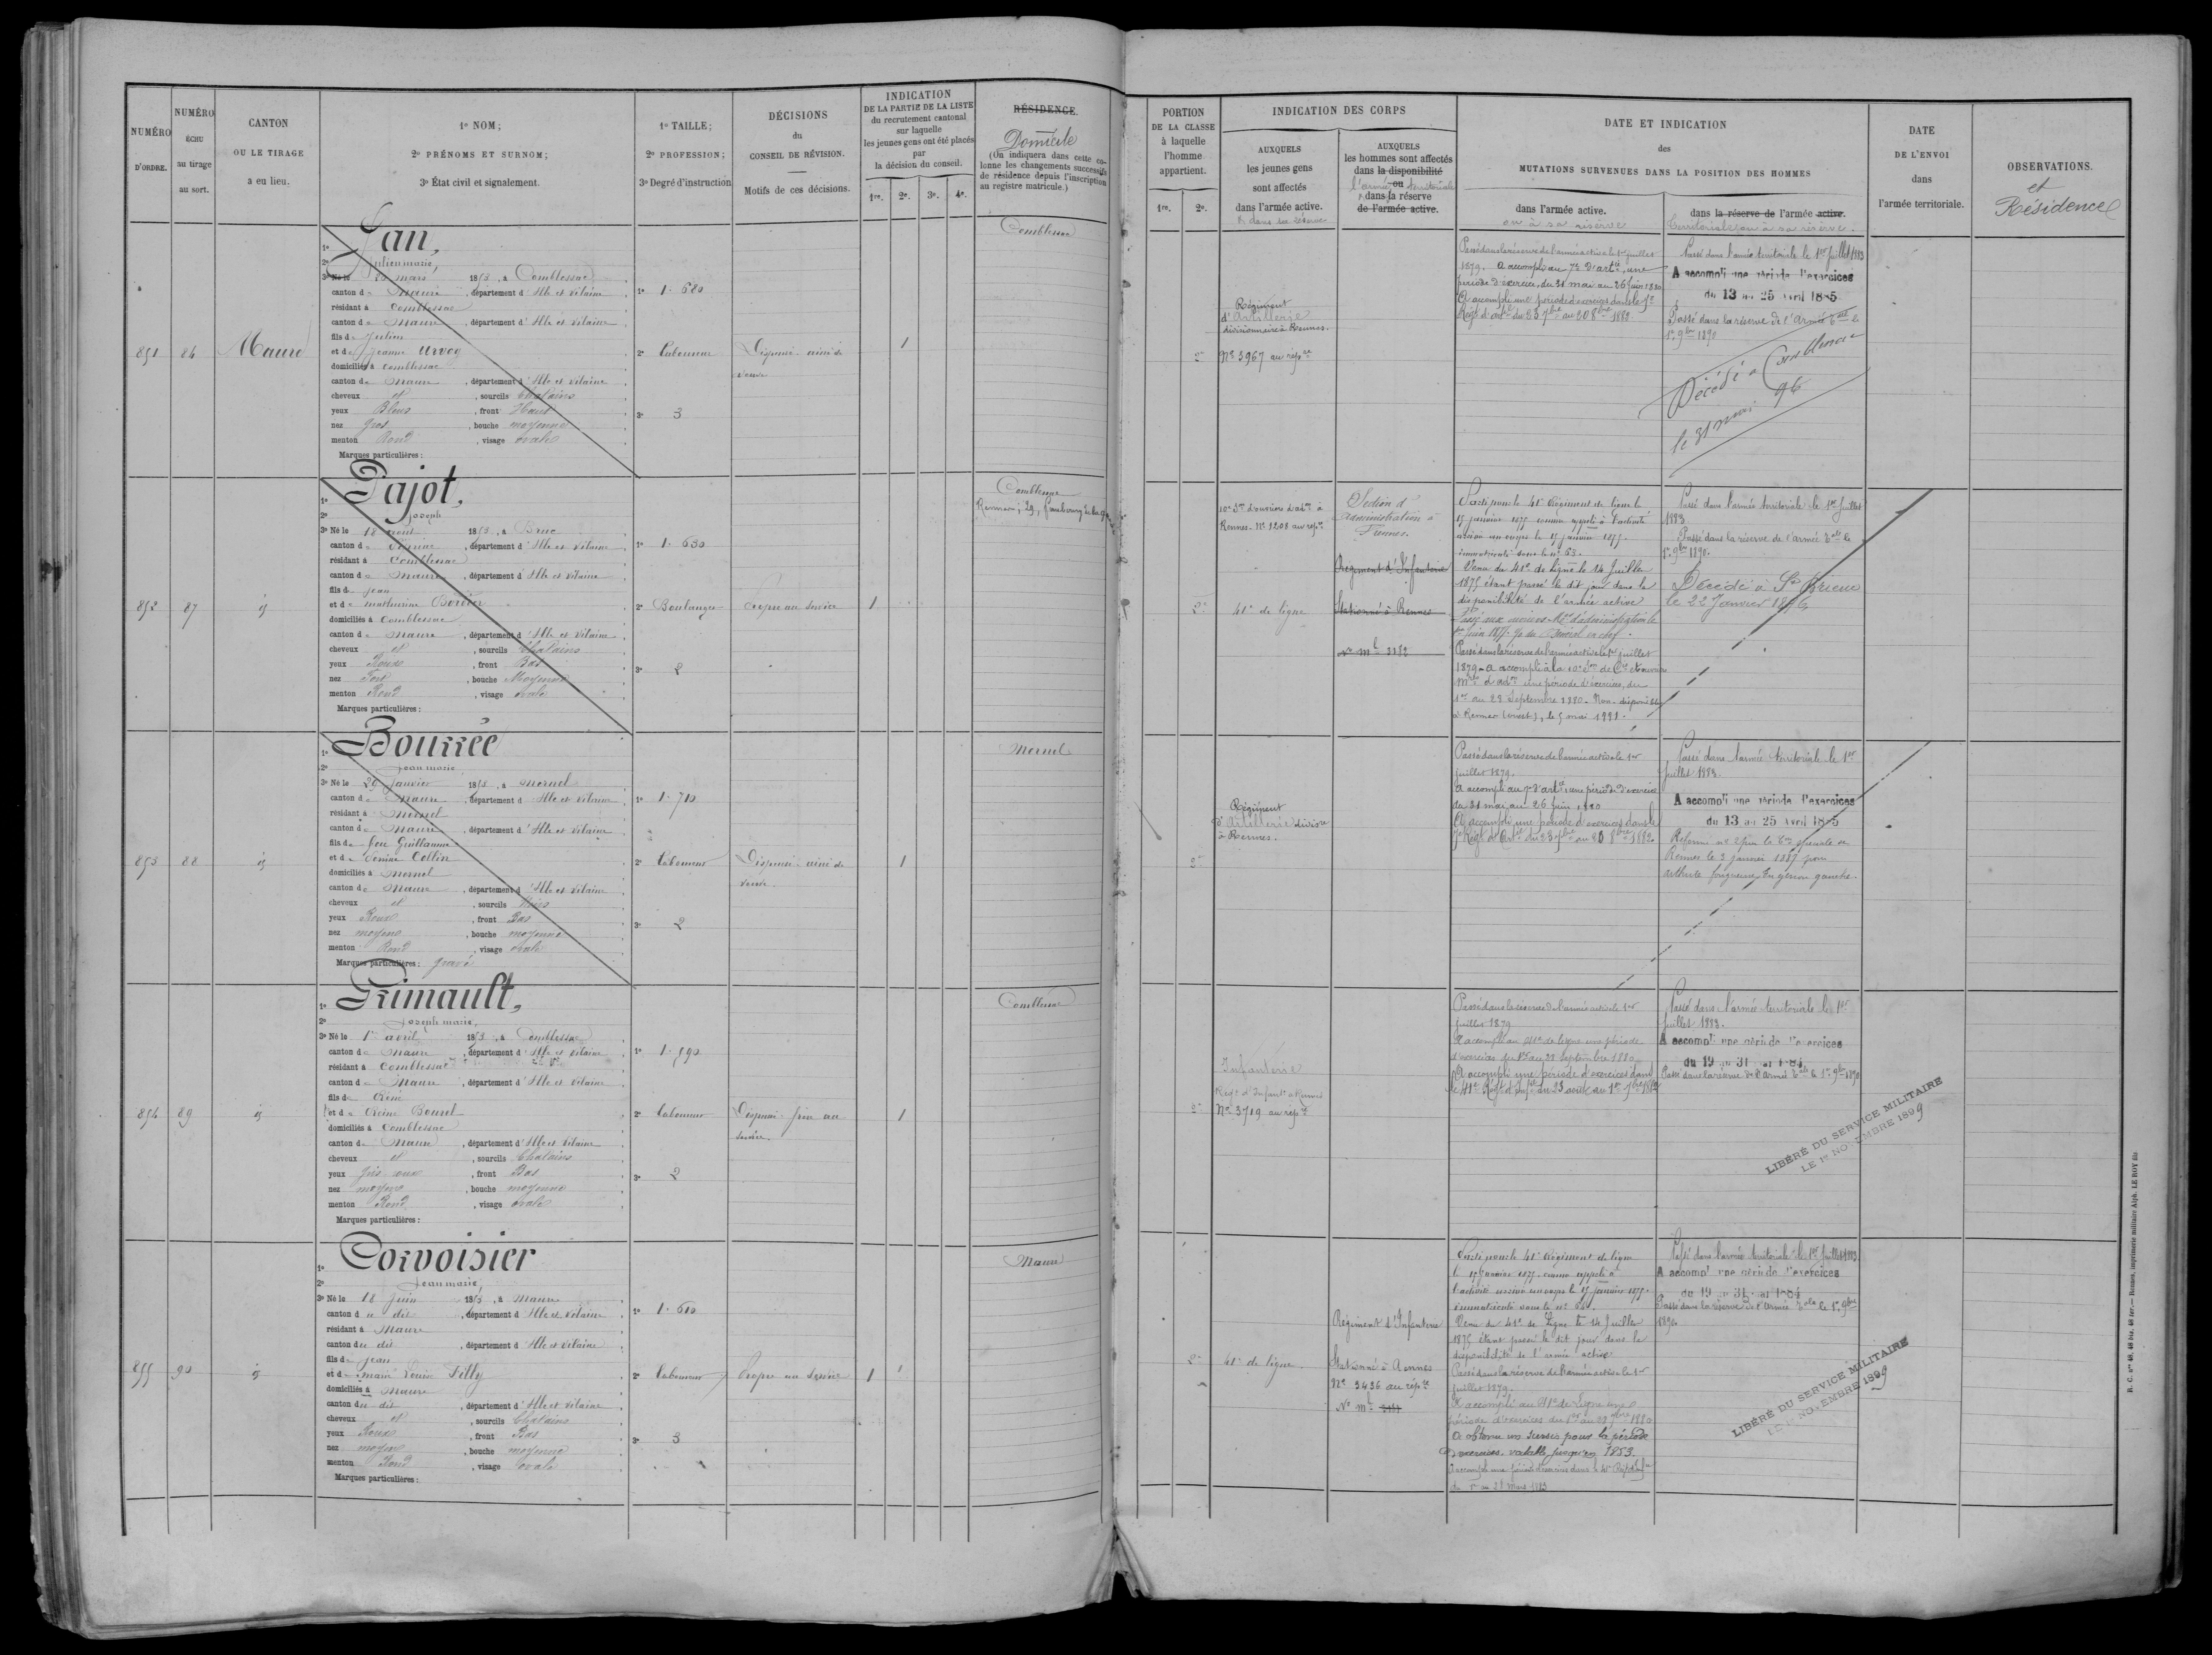 NUMÉRO
D'ORDRE.
NUMÉRO
ÉCHU
au tirage
au sort.
CANTON
OU LE TIRAGE
a eu lieu.
1º NOM;
2º PRÉNOMS ET SURNOM;
3º État civil et signalement.
1º TAILLE;
2º PROFESSION;
3º Degré d'instruction
DÉCISIONS
du
CONSEIL DE RÉVISION.
Motifs de ces décisions.
INDICATION
DE LA PARTIE DE LA LISTE
du recrutement cantonal
sur laquelle
les jeunes gens ont été placés
par
la décision du conseil.
1re. 2e. 3e. 4e.
RÉSIDENCE.
Domicile
(On indiquera dans cette co-
lonne les changements successifs
de résidence depuis l'inscription
au registre matricule.)
851
84
Maure
Jan,
Julien marie
3º Né le mars 1853, à Comblessac
canton de Maure, département d'Ille et Vilaine
résidant à Comblessac
canton de Maure, département d'Ille et Vilaine
fils de Julien
et de Jeanne Urvoy
domiciliés à Comblessac
canton de Maure, département d'Ille et Vilaine
cheveux et, sourcils Chatains
yeux Bleus, front Haut
nez Gros, bouche moyenne
menton Rond, visage ovale
Marques particulières :
1º 1. 680
2º Laboureur
3º 3
Dispensé aîné de
veuve
1
Comblessac
852
87
id
Pajot,
Joseph
3º Né le 18 août 1853, à Bruc
canton de Pipriac, département d'Ille et Vilaine
résidant à Comblessac
canton de Maure, département d'Ille et Vilaine
fils de Jean
et de mathurine Bordier
domiciliés à Comblessac
canton de Maure, département d'Ille et Vilaine
cheveux et, sourcils Chatains
yeux Roux, front Bas
nez Fort, bouche Moyenne
menton Rond, visage ovale
Marques particulières :
1º 1. 630
2º Boulanger
3º 2
Propre au service
1
Comblessac
Rennes, 29, faubourg
853
88
id
Bourrée
Jean marie
3º Né le 29 Janvier 1853, à Mernel
canton de Maure, département d'Ille et Vilaine
résidant à Mernel
canton de Maure, département d'Ille et Vilaine
fils de feu Guillaume
et de Collin
domiciliés à Mernel
canton de Maure, département d'Ille et Vilaine
cheveux et, sourcils Noirs
yeux Roux, front Bas
nez moyen, bouche moyenne
menton Rond, visage ovale
Marques particulières : gravé
1º 1. 710
2º Laboureur
3º 2
Dispensé aîné de
veuve.
1
Mernel
854
89
id
Grimault,
Joseph marie,
3º Né le 1er avril 1853, à Comblessac
canton de Maure, département d'Ille et Vilaine
résidant à Comblessac
canton de Maure, département d'Ille et Vilaine
fils de
et de Bourel
domiciliés à Comblessac
canton de Maure, département d'Ille et Vilaine
cheveux et, sourcils Chatains
yeux Gris roux, front Bas
nez moyen, bouche moyenne
menton Rond, visage ovale
Marques particulières :
1º 1. 590
2º Laboureur
3º 2
Dispensé frère au
service.
1
Comblessac
855
90
id
Corvoisier
Jean marie,
3º Né le 18 Juin 1853, à Maure
canton du dit, département d'Ille et Vilaine
résidant à Maure
canton du dit, département d'Ille et Vilaine
fils de Jean
et de marie Louise Filly
domiciliés à Maure
canton du dit, département d'Ille et Vilaine
cheveux et, sourcils Chatains
yeux Roux, front Bas
nez moyen, bouche moyenne
menton Rond, visage ovale
Marques particulières :
1º 1. 610
2º Laboureur
3º 3
Propre au Service
1
Maure
PORTION
DE LA CLASSE
à laquelle
l'homme
appartient.
1re. 2e.
INDICATION DES CORPS
AUXQUELS
les jeunes gens
sont affectés
dans l'armée active.
AUXQUELS
les hommes sont affectés
dans la disponibilité
ou
l'armée territoriale
dans la réserve
de l'armée active.
DATE ET INDICATION
des
MUTATIONS SURVENUES DANS LA POSITION DES HOMMES
dans l'armée active.
ou à sa réserve
dans la réserve de l'armée active.
territoriale ou à sa réserve.
DATE
DE L'ENVOI
dans
l'armée territoriale.
OBSERVATIONS.
et
Résidence
2e
Régiment
d'Artillerie
divisionnaire à Rennes.
Nº 3967 au rép
Passé dans la réserve de l'armée active le 1er juillet
1879. A accompli au 7e d'artie une
période d'exercice, du 31 mai au 26 juin 1880
A accompli une période d'exercices dans le 7e
Passé dans l'armée territoriale le 1er juillet 1883
A accompli une période d'exercices
du 13 au 25 Avril 1885
Passé dans la réserve de l'Armée le
1er 9bre 1890
Décédé à Comblessac
le 31 mai 96
2e
Rennes. Nº 1208 au rép
41e de ligne
Section d'
administration à
Rennes.
Régiment d'Infanterie
Stationné à Rennes
nº ml 3182
Parti pour le 41e Régiment de ligne le
15 janvier 1875 comme appelé à l'activité
arrivé au corps le 15 janvier 1875.
immatriculé sous le nº 63.
Venu du 41e de Ligne le 14 Juillet
1875 étant passé le dit jour dans la
disponibilité de l'armée active
Passé dans la réserve de l'armée active le 1er juillet
1879 - A accompli à la 10e
une période d'exercices, du
1er au 29 Septembre 1880. Non disponible
à Rennes (ouest), le 5 mai 1881.
Passé dans l'armée territoriale le 1er juillet
1883
Passé dans la réserve de l'armée le
1er 9bre 1890.
Décédé à St Brieuc
le 22 Janvier 1896
2e
Régiment
d'Artillerie divisre
à Rennes.
Passé dans la réserve de l'armée active le 1er
juillet 1879.
A accompli au 7e d'artie une période d'exercice
du 31 mai au 26 juin 1880
A accompli une période d'exercices dans le
Passé dans l'armée territoriale le 1er
juillet 1883.
A accompli une période d'exercices
du 13 au 25 Avril 1885
Rennes le 3 janvier 1887 pour
arthrite fongueuse du genou gauche.
2e
Infanterie
Régt d'Infantie à Rennes
Nº 3719 au rép
Passé dans la réserve de l'armée active le 1er
juillet 1879
A accompli au 41e de ligne une période
d'exercices du 1er au 28 Septembre 1880
A accompli une période d'exercices dans
Passé dans l'armée territoriale le 1er
juillet 1883.
A accompli une période d'exercices
du 19 au 31 mai 1884
Passé dans la réserve de l'armée le 1er 9bre 1890
LIBÉRÉ DU SERVICE MILITAIRE
LE 1er NOVEMBRE 1899
2e
41e de ligne
Régiment d'Infanterie
Stationné à Rennes
Nº 3436 au rép
Nº ml 3181
Parti pour le 41e Régiment de ligne
le 15 janvier 1875 comme appelé à
l'activité arrivé au corps le 15 janvier 1875.
immatriculé sous le nº
Venu du 41e de Ligne le 14 Juillet
1875 étant passé le dit jour dans la
disponibilité de l'armée active.
Passé dans la réserve de l'armée active le 1er
juillet 1879.
A accompli au 41e de Ligne une
période d'exercices du 1er au 28 1880
A obtenu un sursis pour la période
d'exercices valable jusqu'en 1883.
du 1er au 28 Mars 1883
Passé dans l'armée territoriale le 1er juillet 1883
A accompli une période d'exercices
du 19 au 31 mai 1884
Passé dans la réserve de l'Armée le 1er 9bre
1890
LIBÉRÉ DU SERVICE MILITAIRE
LE 1er NOVEMBRE 1899
R. C. nos 48, 48 bis, 48 ter. — Rennes, imprimerie militaire Alph. LE ROY fils